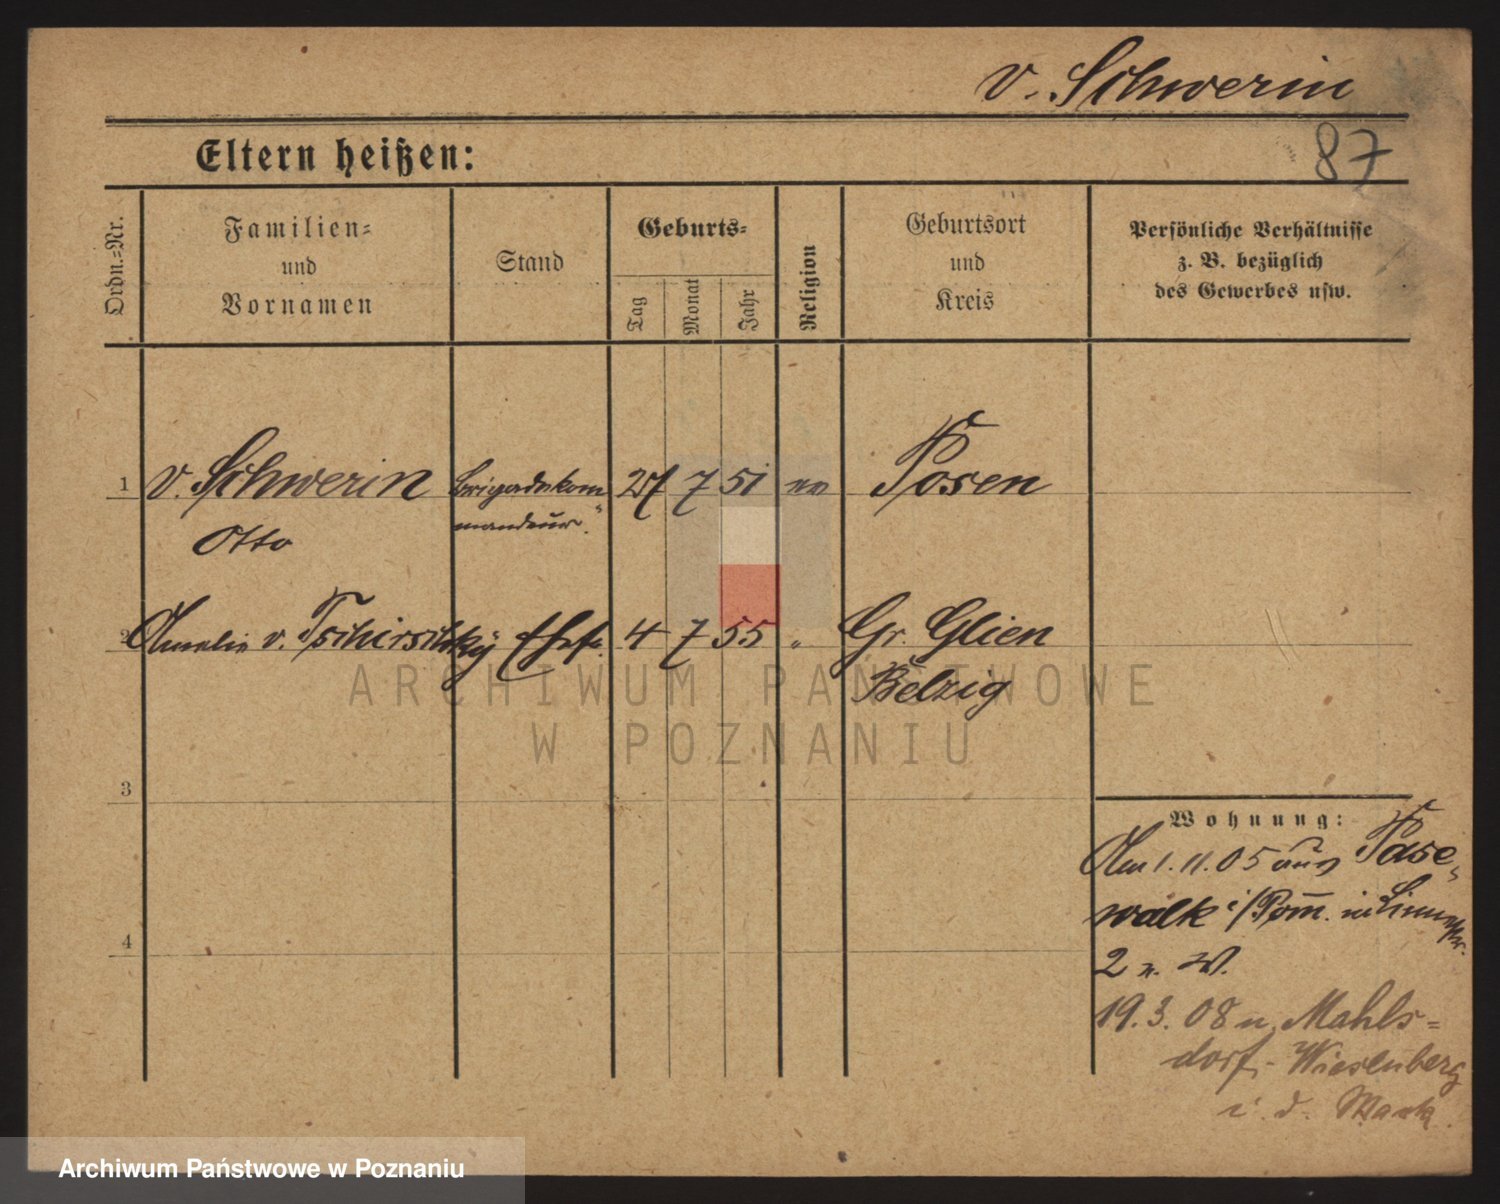 v. Schwerin
87
Eltern heißen:
Ordn.-Nr.
Familien-
und
Vornamen
Stand
Geburts-
Tag
Monat
Jahr
Religion
Geburtsort
und
Kreis
Persönliche Verhältnisse
z. B. bezüglich
des Gewerbes usw.
1 v. Schwerin Brigadekom- 27 7 51 ev Posen
Otto mandeur.
2 Amalie v. Tschirschky Ehefr. 4 7 55 " Gr. Glien
Belzig
3
4
Wohnung:
Am 1. 11. 05 aus Pase-
walk i/Pom̅. in
2 n. W.
19. 3. 08 n. Mahls-
dorf - Wiesenberg
i. d. Mark.
ARCHIWUM PAŃSTWOWE
W POZNANIU
Archiwum Państwowe w Poznaniu